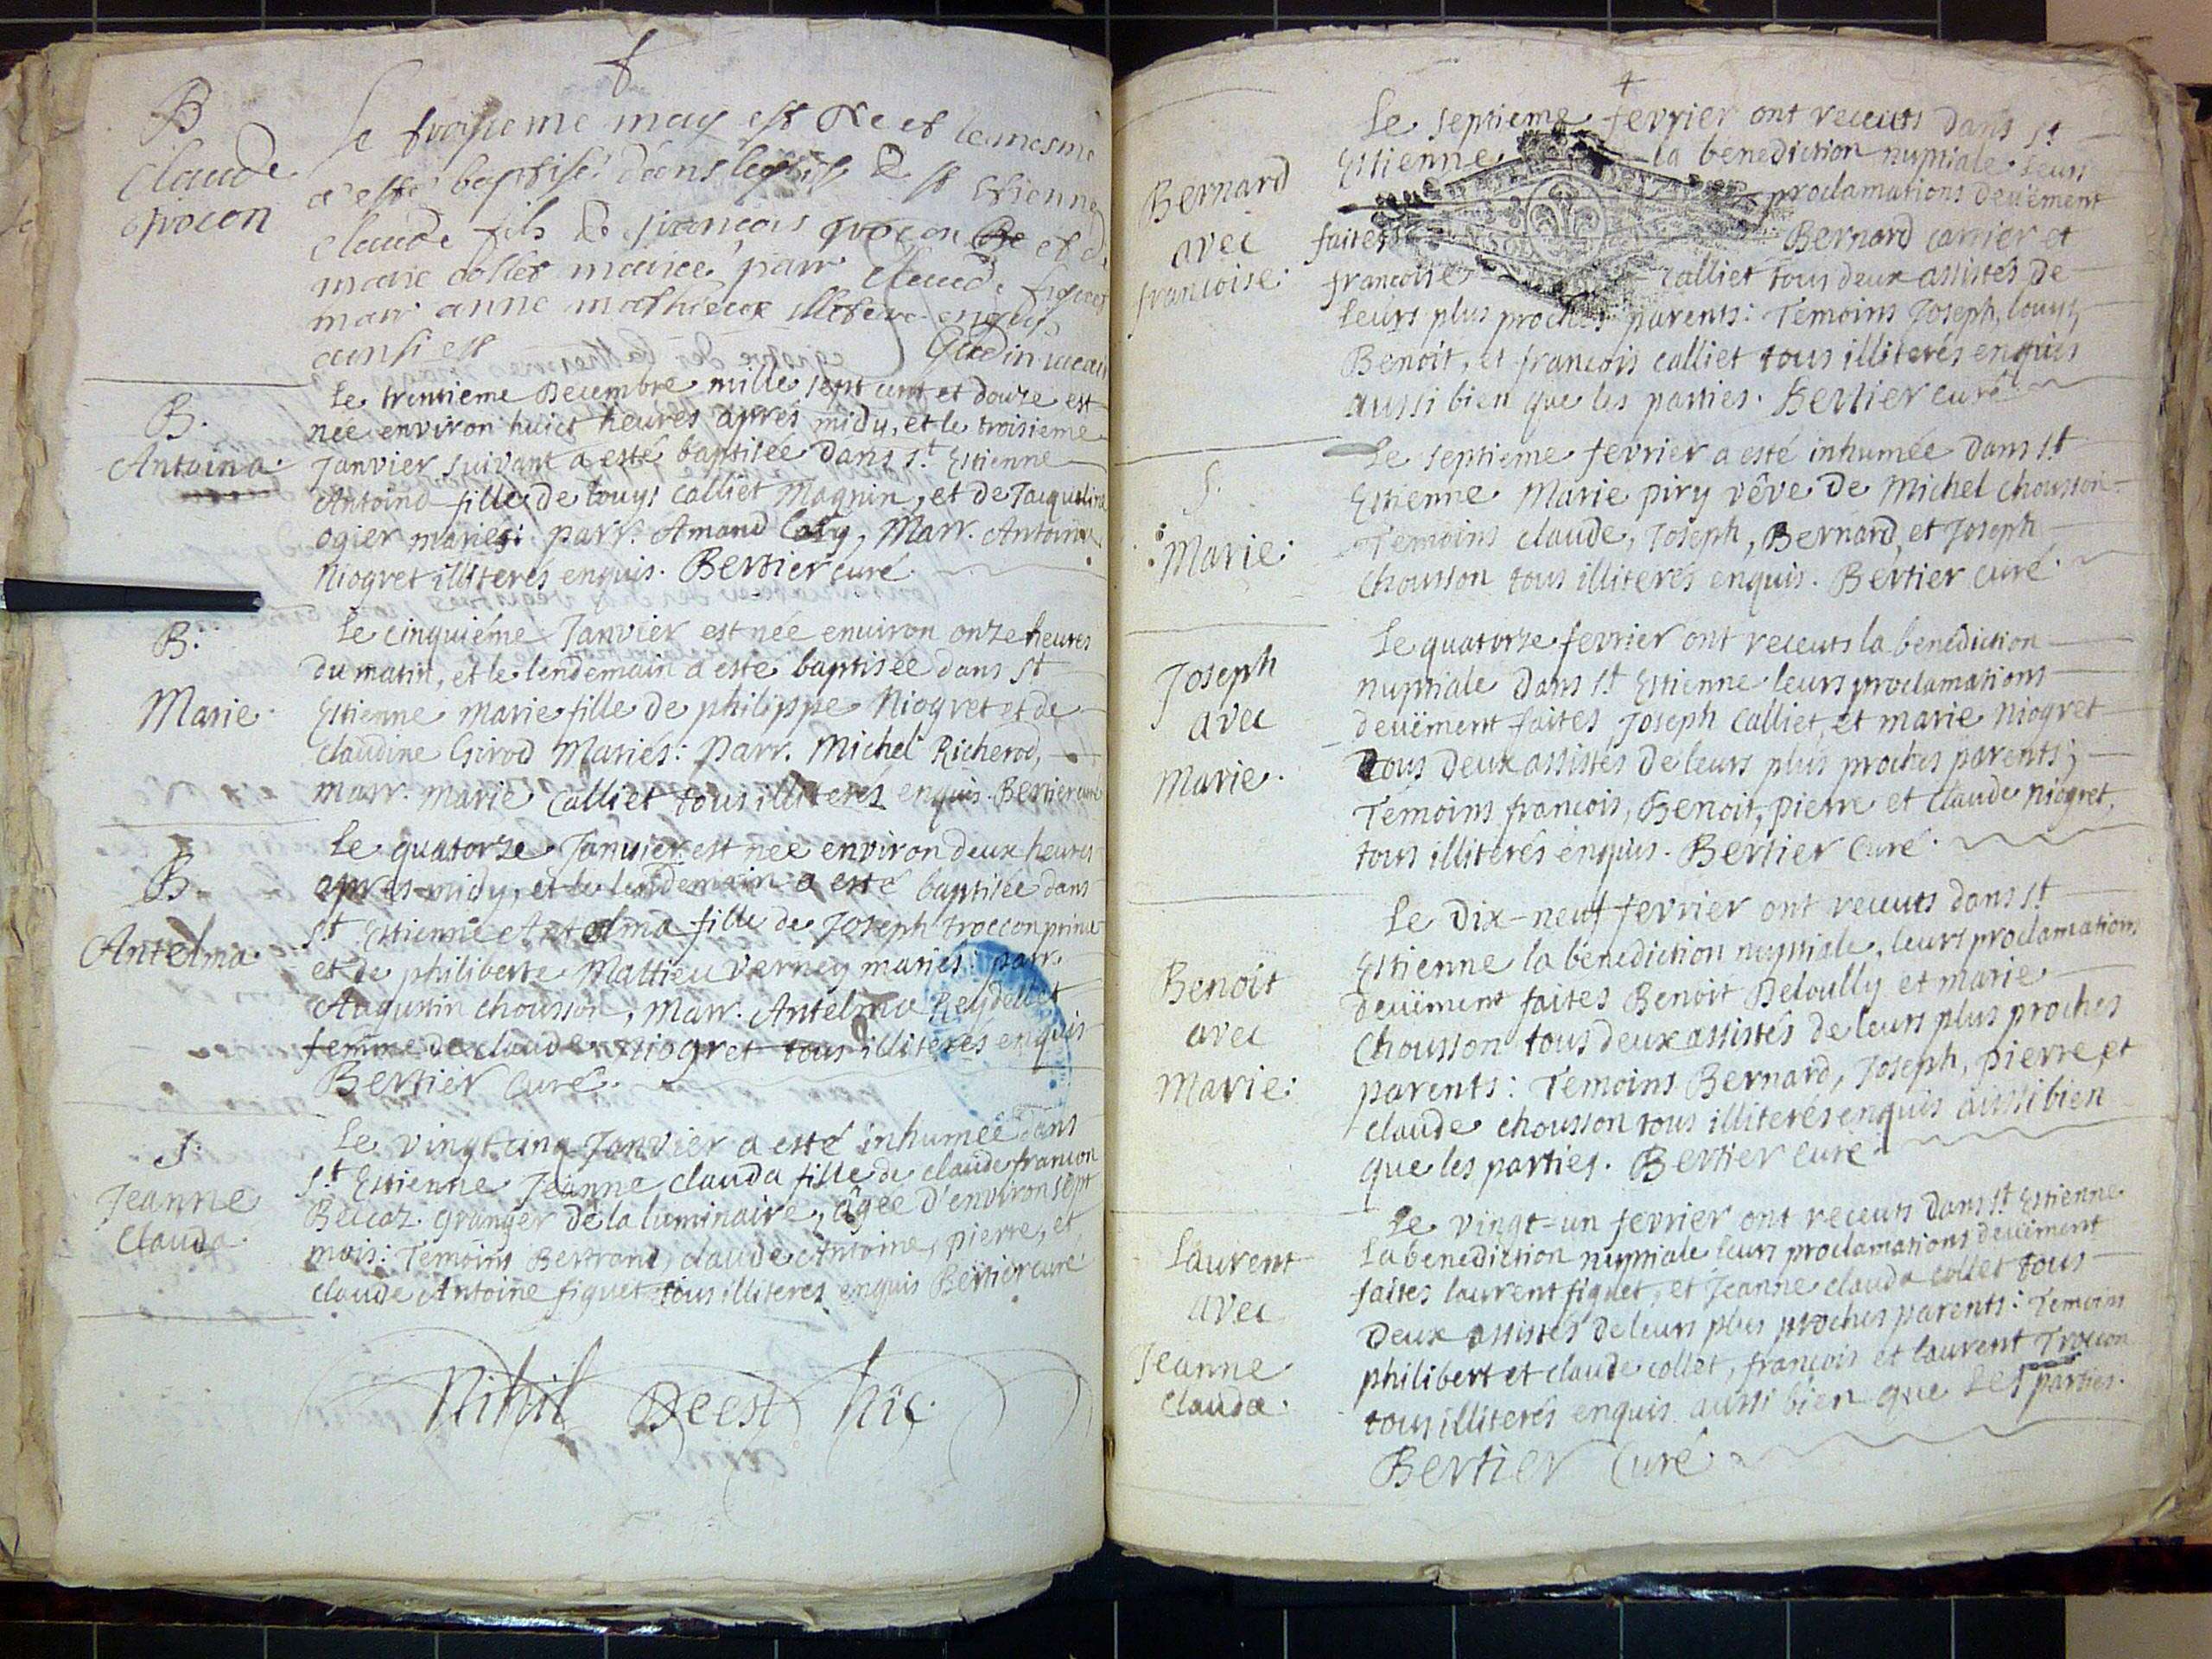 B
Claude
trocon
Le troisieme may est Ne et le mesme
a esté baptisé dans leglise de st Etienne
claude fils de francois trocon et de
marie collet mariés parr claude figuet
marr anne mathieux illiteres enquis
ainsi est Gudin vicaire
B.
Antoina.
Le trentieme Decembre mille sept cent et douze est
née environ huict heures aprés midy, et le troisieme
Janvier suivant a esté baptisée Dans st Estienne
Antoina fille de louys Calliet Magnin, et de Jacqueline
ogier mariés: parr. Amand Caty, Marr. Antoina
Niogret illiterés enquis. Bertier curé.
B.
Marie.
Le cinquiéme Janvier est née environ onze heures
du matin, et le lendemain a esté baptisée dans st
Estienne Marie fille de philippe Niogret et de
Claudine Girod Mariés: parr. Michel Richerod,
marr. marie Calliet tous illiterés enquis. Bertier curé
B.
Antelma.
Le quatorze Janvier est née environ deux heures
aprés midy, et le lendemain a esté baptisée dans
st Estienne Antelma fille de Joseph troccon prime
et de philiberte Mattieu verney mariés: parr.
Augustin chousson, Marr. Antelma Reydellet
femme de claude Niogret tous illiterés enquis
Bertier Curé.
S.
Jeanne
Clauda.
Le vingt cinq Janvier a esté inhumée dans
st Estienne Jeanne clauda fille de claude francon
Beccaz granger de la luminaire, âgée d'environ sept
mois: Témoins Bertrand, claude Antoine, pierre, et
claude Antoine figuet tous illiterés enquis Bertier curé
Nihil Deest hic.
Bernard
avec
francoise:
Le septieme fevrier ont receuts dans st
Estienne la benediction nuptiale leurs
proclamations deuëment
faites Bernard carrier et
francoise calliet tous deux assistés de
Leurs plus proches parents: Temoins Joseph, louys,
Benoit, et francois calliet tous illiterés enquis
aussi bien que les parties. Bertier curé
S.
Marie.
Le septieme fevrier a esté inhumée dans st
Estienne Marie piry vêve de Michel chousson
Temoins claude, Joseph, Bernard, et Joseph
Chousson tous illiterés enquis. Bertier curé.
Joseph
avec
Marie.
Le quatorze fevrier ont receuts la benediction
nuptiale dans st Estienne leurs proclamations
deuëment faites Joseph Calliet, et marie Niogret
tous deux assistés de leurs plus proches parents;
Témoins francois, Benoit, pierre et claude Niogret,
tous illiterés enquis. Bertier Curé.
Benoit
avec
Marie:
Le Dix-neuf fevrier ont receuts dans st
Estienne la benediction nuptiale, leurs proclamations
deuëment faites Benoit Deloully et marie
Chousson tous deux assistés de leurs plus proches
parents: Temoins Bernard, Joseph, pierre, et
claude chousson tous illiterés enquis aussi bien
que les parties. Bertier curé
Laurent
avec
Jeanne
Clauda.
Le vingt-un fevrier ont receuts dans st Estienne
La benediction nuptiale leurs proclamations deuëment
faites laurent figuet, et Jeanne clauda collet tous
Deux assistés de leurs plus proches parents: Temoins
philibert et claude collet, francois et laurent Troccon
tous illiterés enquis aussi bien que les parties.
Bertier Curé.